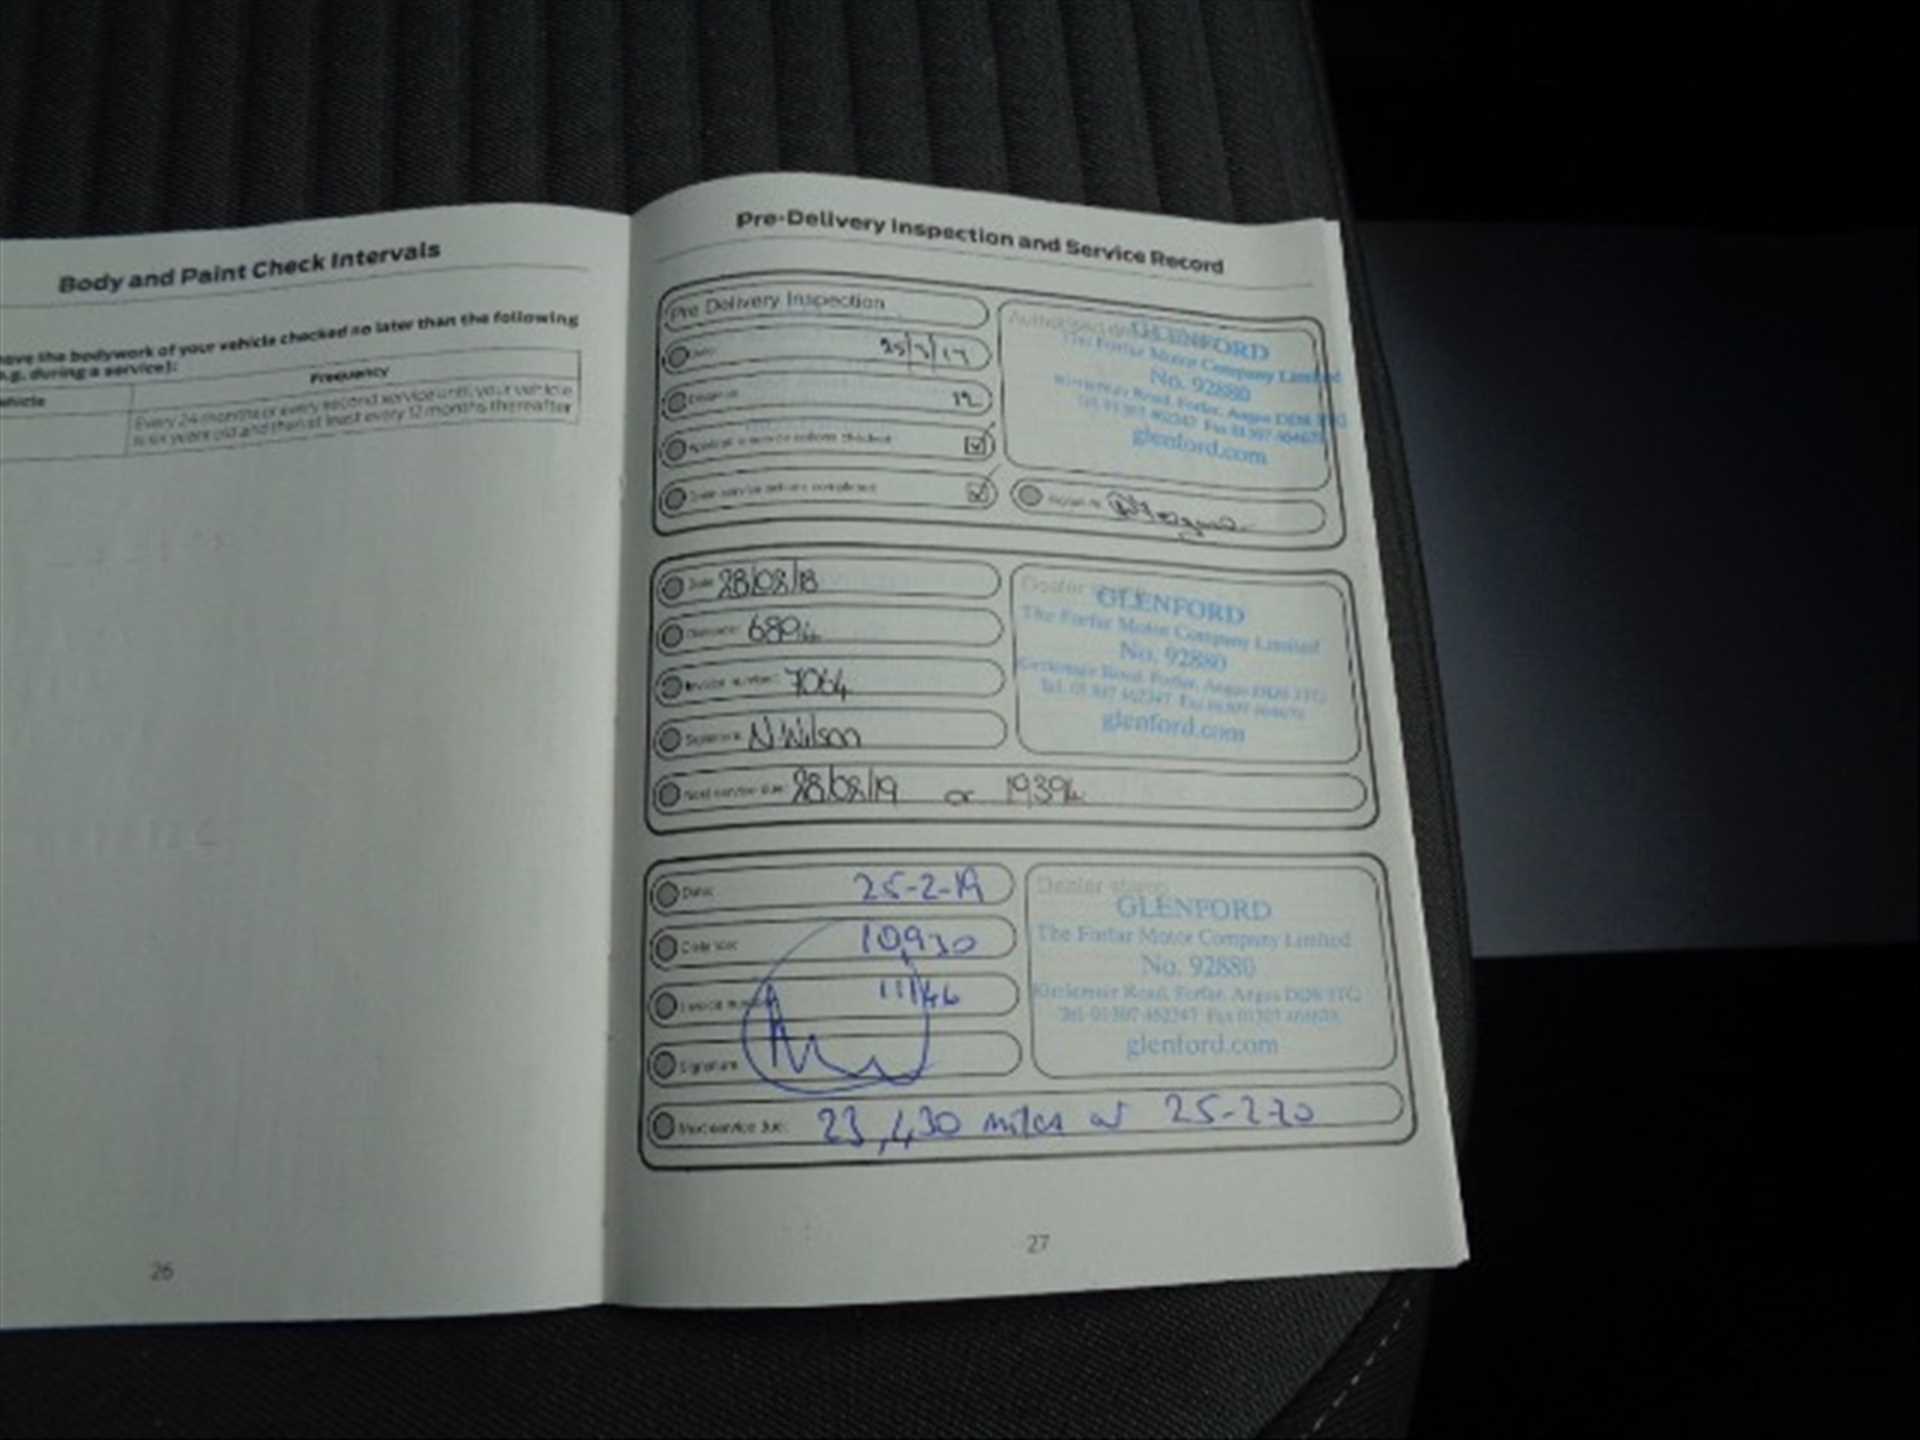 Body and Paint Check Intervals
have the bodywork of your vehicle checked no later than the following
e.g. during a service):
vehicle Frequency
Every 24 months or every second service until your vehicle
is six years old and then at least every 12 months thereafter
26
Pre-Delivery Inspection and Service Record
Pre Delivery Inspection
Date:
12
completed
GLENFORD
The Forfar Motor Company Limited
No. 92880
Kirriemuir Road, Forfar, Angus DD8 3TG
Tel. 01307 462347 Fax 01307
glenford.com
Date: 28/02/18
Odometer: 6894
Invoice number: 7064
Signature: N Wilson
Next service due: 28/02/19 or 19394
Dealer stamp
GLENFORD
The Forfar Motor Company Limited
No. 92880
Kirriemuir Road, Forfar, Angus DD8 3TG
Tel. 01307 462347 Fax 01307
glenford.com
Date: 25-2-19
Odometer: 10,930
Invoice number: 11146
Signature:
Next service due: 23,430 miles or 25-2-20
Dealer stamp
GLENFORD
The Forfar Motor Company Limited
No. 92880
Kirriemuir Road, Forfar, Angus DD8 3TG
Tel. 01307 462347 Fax 01307
glenford.com
27